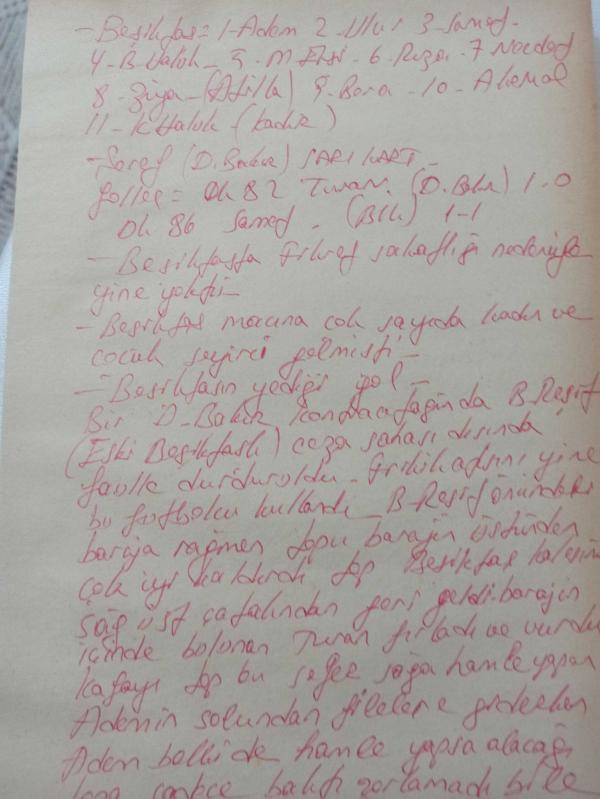 - Beşiktaş = 1-Adem 2-Ulvi 3-Samed-
4-B Haluk - 5-M Ekşi - 6-Rıza - 7 Necded
8-Ziya - (Atilla) 9-Bora - 10 - A kemal
11 - K Haluk - (kadir)
- Seref (D.Bakır) SARI KART -
Goller = Dk 82 Turan (D.Bakır) 1-0
Dk 86 Samed - (BJK) 1-1
- Beşiktaşta Fikret sakatlığı nedeniyle
yine yoktu -
- Beşiktaş maçına çok sayıda kadın ve
çocuk seyirci gelmişti -
- Beşiktaşın yediği gol -
Bir D-Bakır kontratağında B-Reşit
(Eski Beşiktaşlı) ceza sahası dışında
faulle durduruldu - frikik atışını yine
bu futbolcu kullandı - B Reşit önündeki
baraja rağmen topu barajın üstünden
çok iyi kaldırdı top Beşiktaş kalesinin
sağ üst çatalından geri geldi barajın
içinde bulunan Turan fırladı ve vurdu
kafayı top bu sefer sağa hamle yapan
Ademin solundan filelere giderken
Adem belki de hamle yapsa alacağı
topa sadece baktı zorlamadı bile